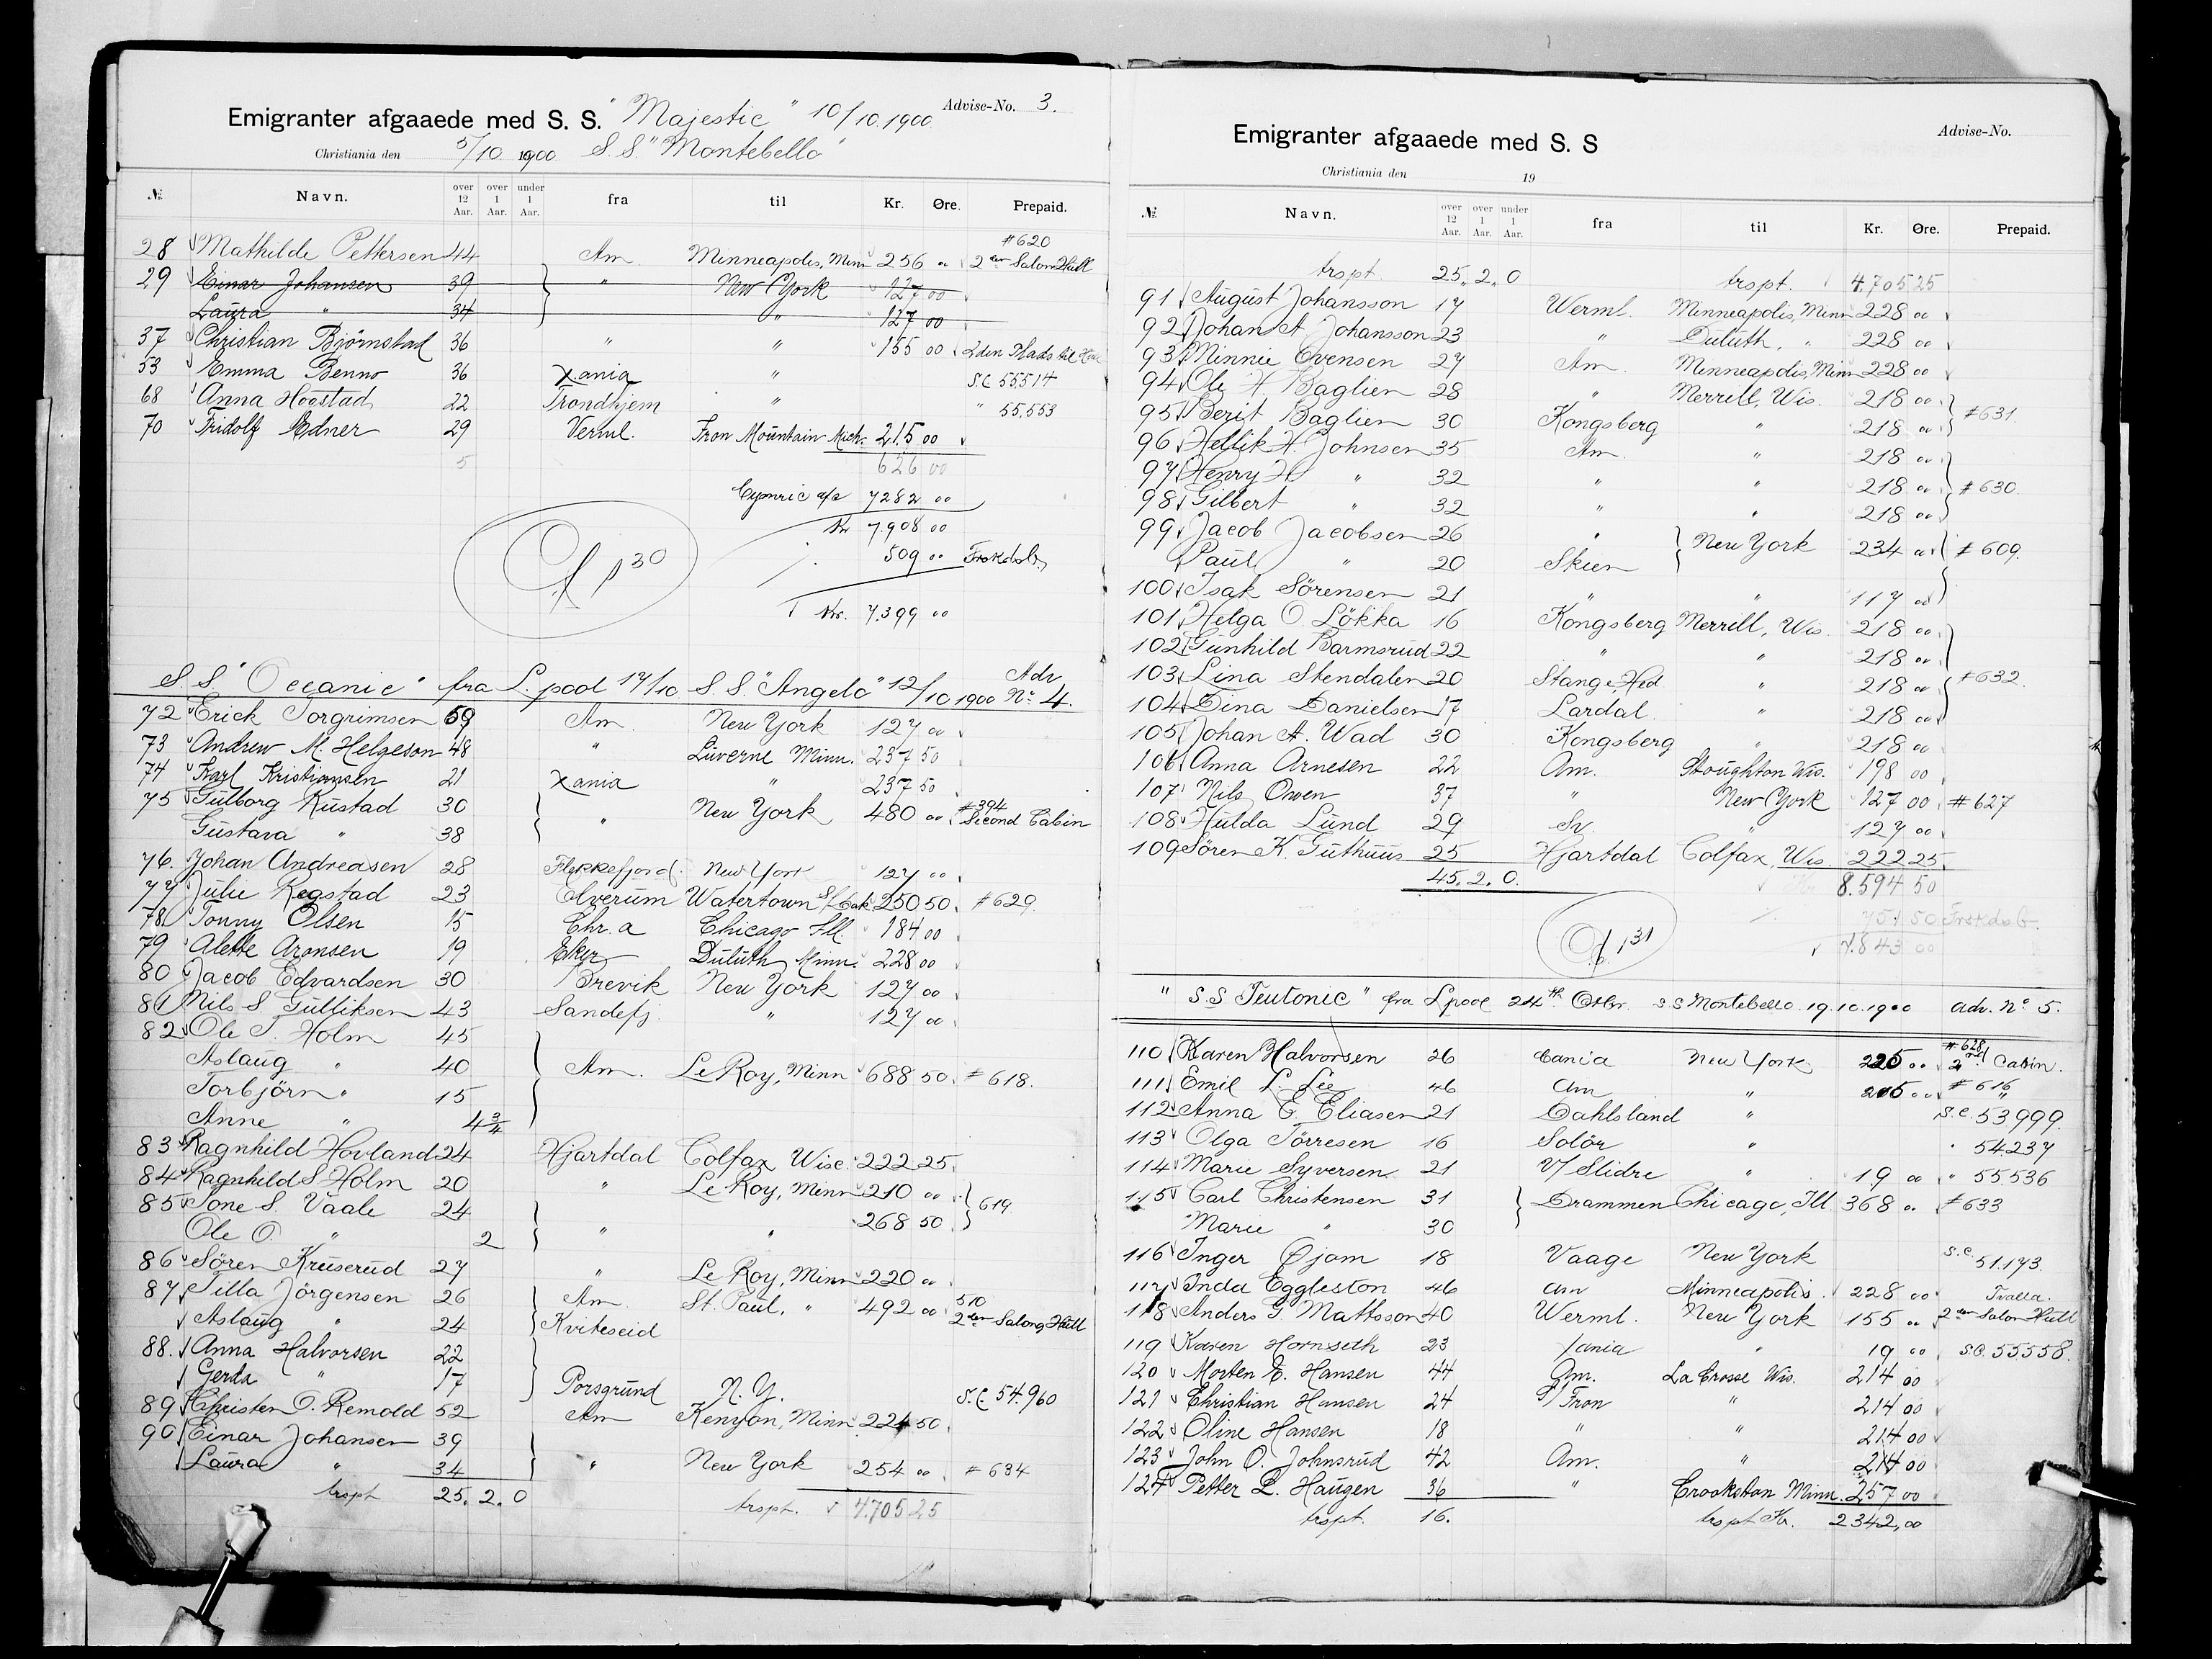 Emigranter afgaaede med S. S. "Majestic" 10/10.1900 Advise-No. 3.
Christiania den 5/10 1900 S.S. "Montebello"
№ Navn. over 12 Aar. over 1 Aar. under 1 Aar. fra til Kr. Øre. Prepaid.
#620
28 Mathilde Pettersen 44 Am Minneapolis, Minn 256 " 2den Salon Hull
29 Einar Johansen 39 " New York 127 00
Laura " 34 " 127 00
37 Christian Björnstad 36 " " 155 00 2den Plads til
53 Emma Benno 36 Xania " S.C. 55514
68 Anna Hogstad 22 Trondhjem " " 55,553
70 Fridolf Edner 29 Verml. Iron Mountain Mich. 215 00
5 626 00
Cymric 7282 00
Kr 7.908 00
509 00
30
Kr. 7.399 00
S.S. "Oceanic" fra L.pool 17/10 S.S. "Angelo" 12/10 1900 Adv No 4.
72 Erick Torgrimsen 59 Am New York 127 00
73 Andrew M. Helgeson 48 " Luverne Minn. 237 50
74 Karl Kristiansen 21 Xania " 237 50
75 Gulborg Rustad 30 } " New York 480 00 #394 Second Cabin
Gustava " 38
76. Johan Andreasen 28 Flekkefjord. New York 127 00
77 Julie Regstad 23 Elverum Watertown S/Dak 250 50 #629
78 Tonny Olsen 15 Chr.a Chicago Ill. 184 00
79 Alette Aronsen 19 Eker Duluth Minn. 228 00
80 Jacob Edvardsen 30 Brevik New York 127 00
81 Nils S Gulliksen 43 Sandefj. " 127 00
82 Ole T. Holm 45
Aslaug " 40 } Am. Le Roy, Minn 688 50 #618.
Torbjörn " 15
Anne " 4 3/4
83 Ragnhild Hovland 24 Hjartdal Colfax Wisc. 222 25
84 Ragnhild S Holm 20 " Le Roy, Minn 210 00 } 619
85 Tone S. Vaale 24 } " " 268 50
Ole O. " 2
86 Sören Kruserud 27 " Le Roy, Minn 220 00
87 Tilla Jörgensen 26 } Am St. Paul, " 492 00 510 2den Salong Hull
Aslaug " 24 Kviteseid
88. Anna Halvorsen 22
Gerda " 17 } Porsgrund N.Y. S.C. 54.960
89 Christen O. Remold 52 Am Kenyon, Minn 224 50
90 Einar Johansen 39
Laura " 34 } " New York 254 00 #634
trspt 25. 2. 0 trspt. 4.705 25
Emigranter afgaaede med S. S Advise-No.
Christiania den 19
№ Navn. over 12 Aar. over 1 Aar. under 1 Aar. fra til Kr. Øre. Prepaid.
trspt. 25. 2. 0 trspt. 4.705 25
91 August Johansson 17 Werml. Minneapolis, Minn 228 00
92 Johan A Johansson 23 " Duluth, " 228 00
93 Minnie Evensen 27 Am. Minneapolis, Minn 228 00
94 Ole H. Baglien 28 " Merrill, Wis. 218 00 } #631
95 Berit Baglien 30 Kongsberg " 218 00
96 Hellik H. Johnsen 35 Am. " 218 00
97 Henry H " 32 " " 218 00 } #630.
98 Gilbert " 32 " " 218 00
99 Jacob Jacobsen 26 " } New York 234 00 #609.
Paul " 20 Skien
100 Isak Sörensen 21 " " 117 00
101 Helga O. Lökka 16 Kongsberg Merrill, Wis. 218 00
102 Gunhild Barmsrud 22 " " 218 00
103 Lina Stendalen 20 Stange, Hed " 218 00 #632.
104 Dina Danielsen 17 Lardal. " 218 00
105 Johan A. Wad 30 Kongsberg " 218 00
106 Anna Arnesen 22 Am. Stoughton Wis. 198 00
107 Nils Owen 37 " New York 127 00 #627
108 Hulda Lund 29 Sv. " 127 00
109 Sören K. Guthuus 25 Hjartdal Colfax, Wis. 222 25
45. 2. 0. Kr 8.594 50
751 50
31 7.843 00
"S.S Teutonic" fra Lpool 24th Octbr. SS Montebello. 19.10.1900 adv. No 5.
110 Karen Halvorsen 26 Xania New York 225 00 #628 2nd Cabin.
111 Emil L. Lee 46 Am " 205 00 #616 "
112 Anna E. Eliasen 21 Dahlsland " S.C. 53999.
113 Olga Törresen 16 Solör " " 54237
114 Marie Syversen 21 V/Slidre " 19 00 " 55536
115 Carl Christensen 31 } Drammen Chicago, Ill 368 00 #633
Marie " 30
116 Inger Øjam 18 Vaage New York S.C. 51.173.
117 Inda Eggleston 46 Am Minneapolis. 228 00
118 Anders G Mattsson 40 Werml. New York 155 00 2den Salon Hull
119 Karen Hornseth 23 Xania " 19 00 S.C. 55558.
120 Morten E. Hansen 44 Am. La Crosse Wis. 214 00
121 Christian Hansen 24 S/Fron " 214 00
122 Oline Hansen 18 " " 214 00
123 John O. Johnsrud 42 Am. " 214 00
124 Petter L. Haugen 36 " Crookston Minn. 257 00
trspt. 16. trspt Kr. 2342,00